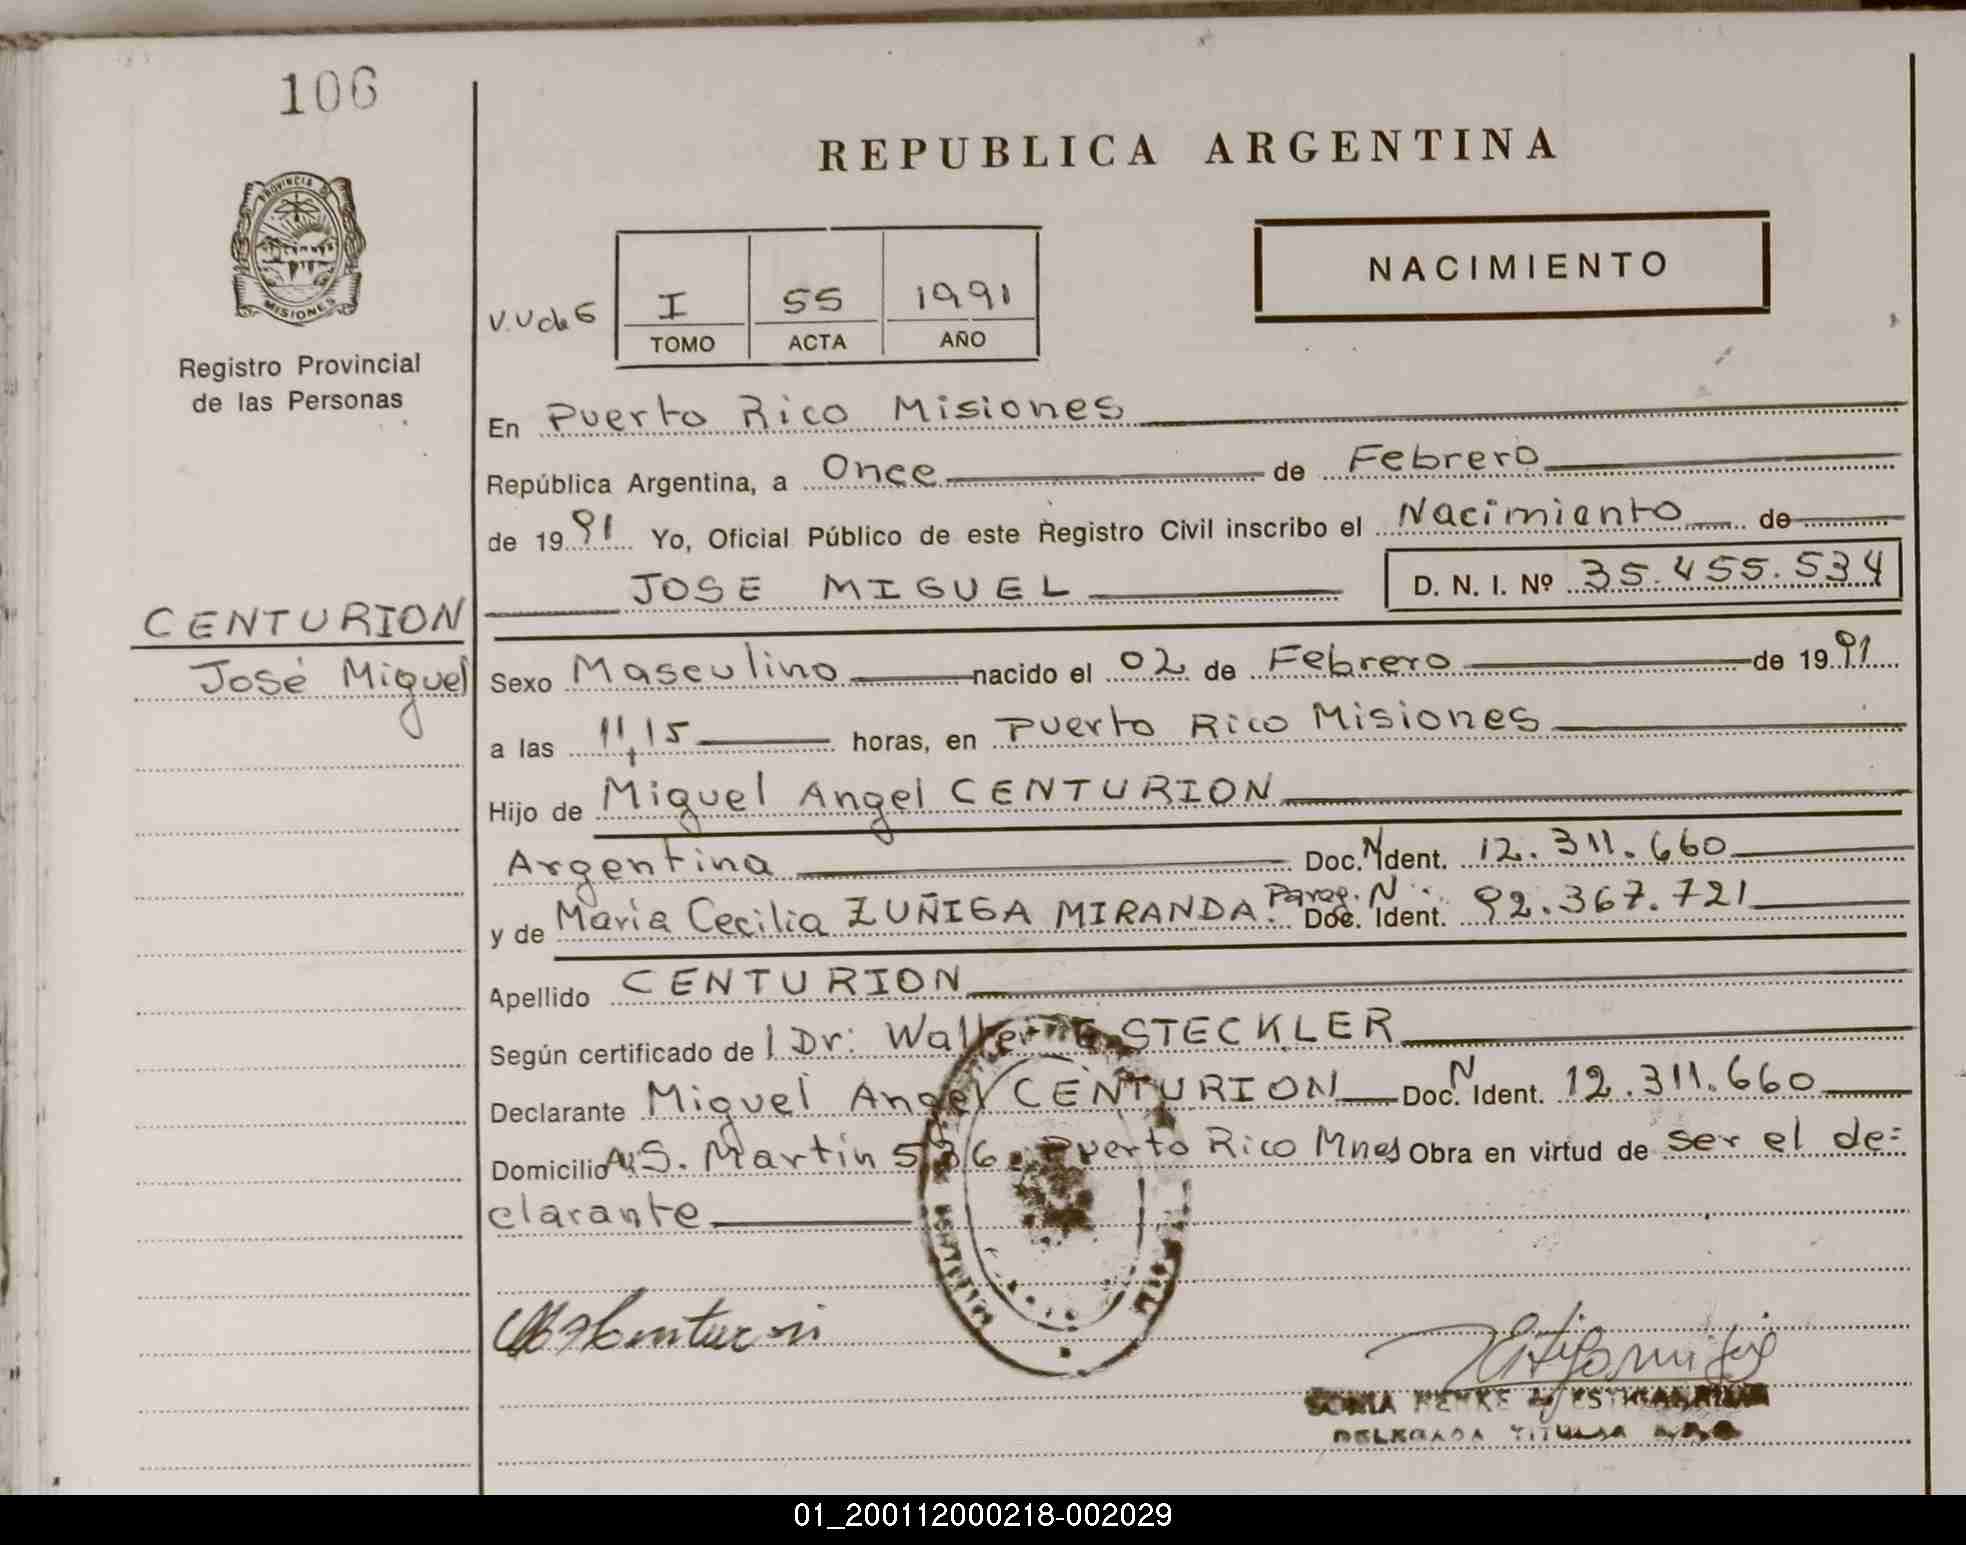 106
REPUBLICA ARGENTINA
PROVINCIA DE
MISIONES
NACIMIENTO
V.V de 6
I 55 1991
TOMO ACTA AÑO
Registro Provincial
de las Personas
En Puerto Rico Misiones
República Argentina, a Once de Febrero
de 1991 Yo, Oficial Público de este Registro Civil inscribo el Nacimiento de
JOSE MIGUEL D. N. I. Nº 35.455.534
CENTURION
José Miguel
Sexo Masculino nacido el 02 de Febrero de 1991
a las 11,15 horas, en Puerto Rico Misiones
Hijo de Miguel Angel CENTURION
Argentina Doc. N Ident. 12.311.660
y de María Cecilia ZUÑIGA MIRANDA. Parag. N Doc. Ident. 92.367.721
Apellido CENTURION
Según certificado de Dr: Walter STECKLER
Declarante Miguel Angel CENTURION Doc. N Ident. 12.311.660
Domicilio Av S. Martín 536. Puerto Rico Mnes Obra en virtud de ser el de=
clarante
SONIA HENKE
DELEGADA TITULAR
01_200112000218-002029